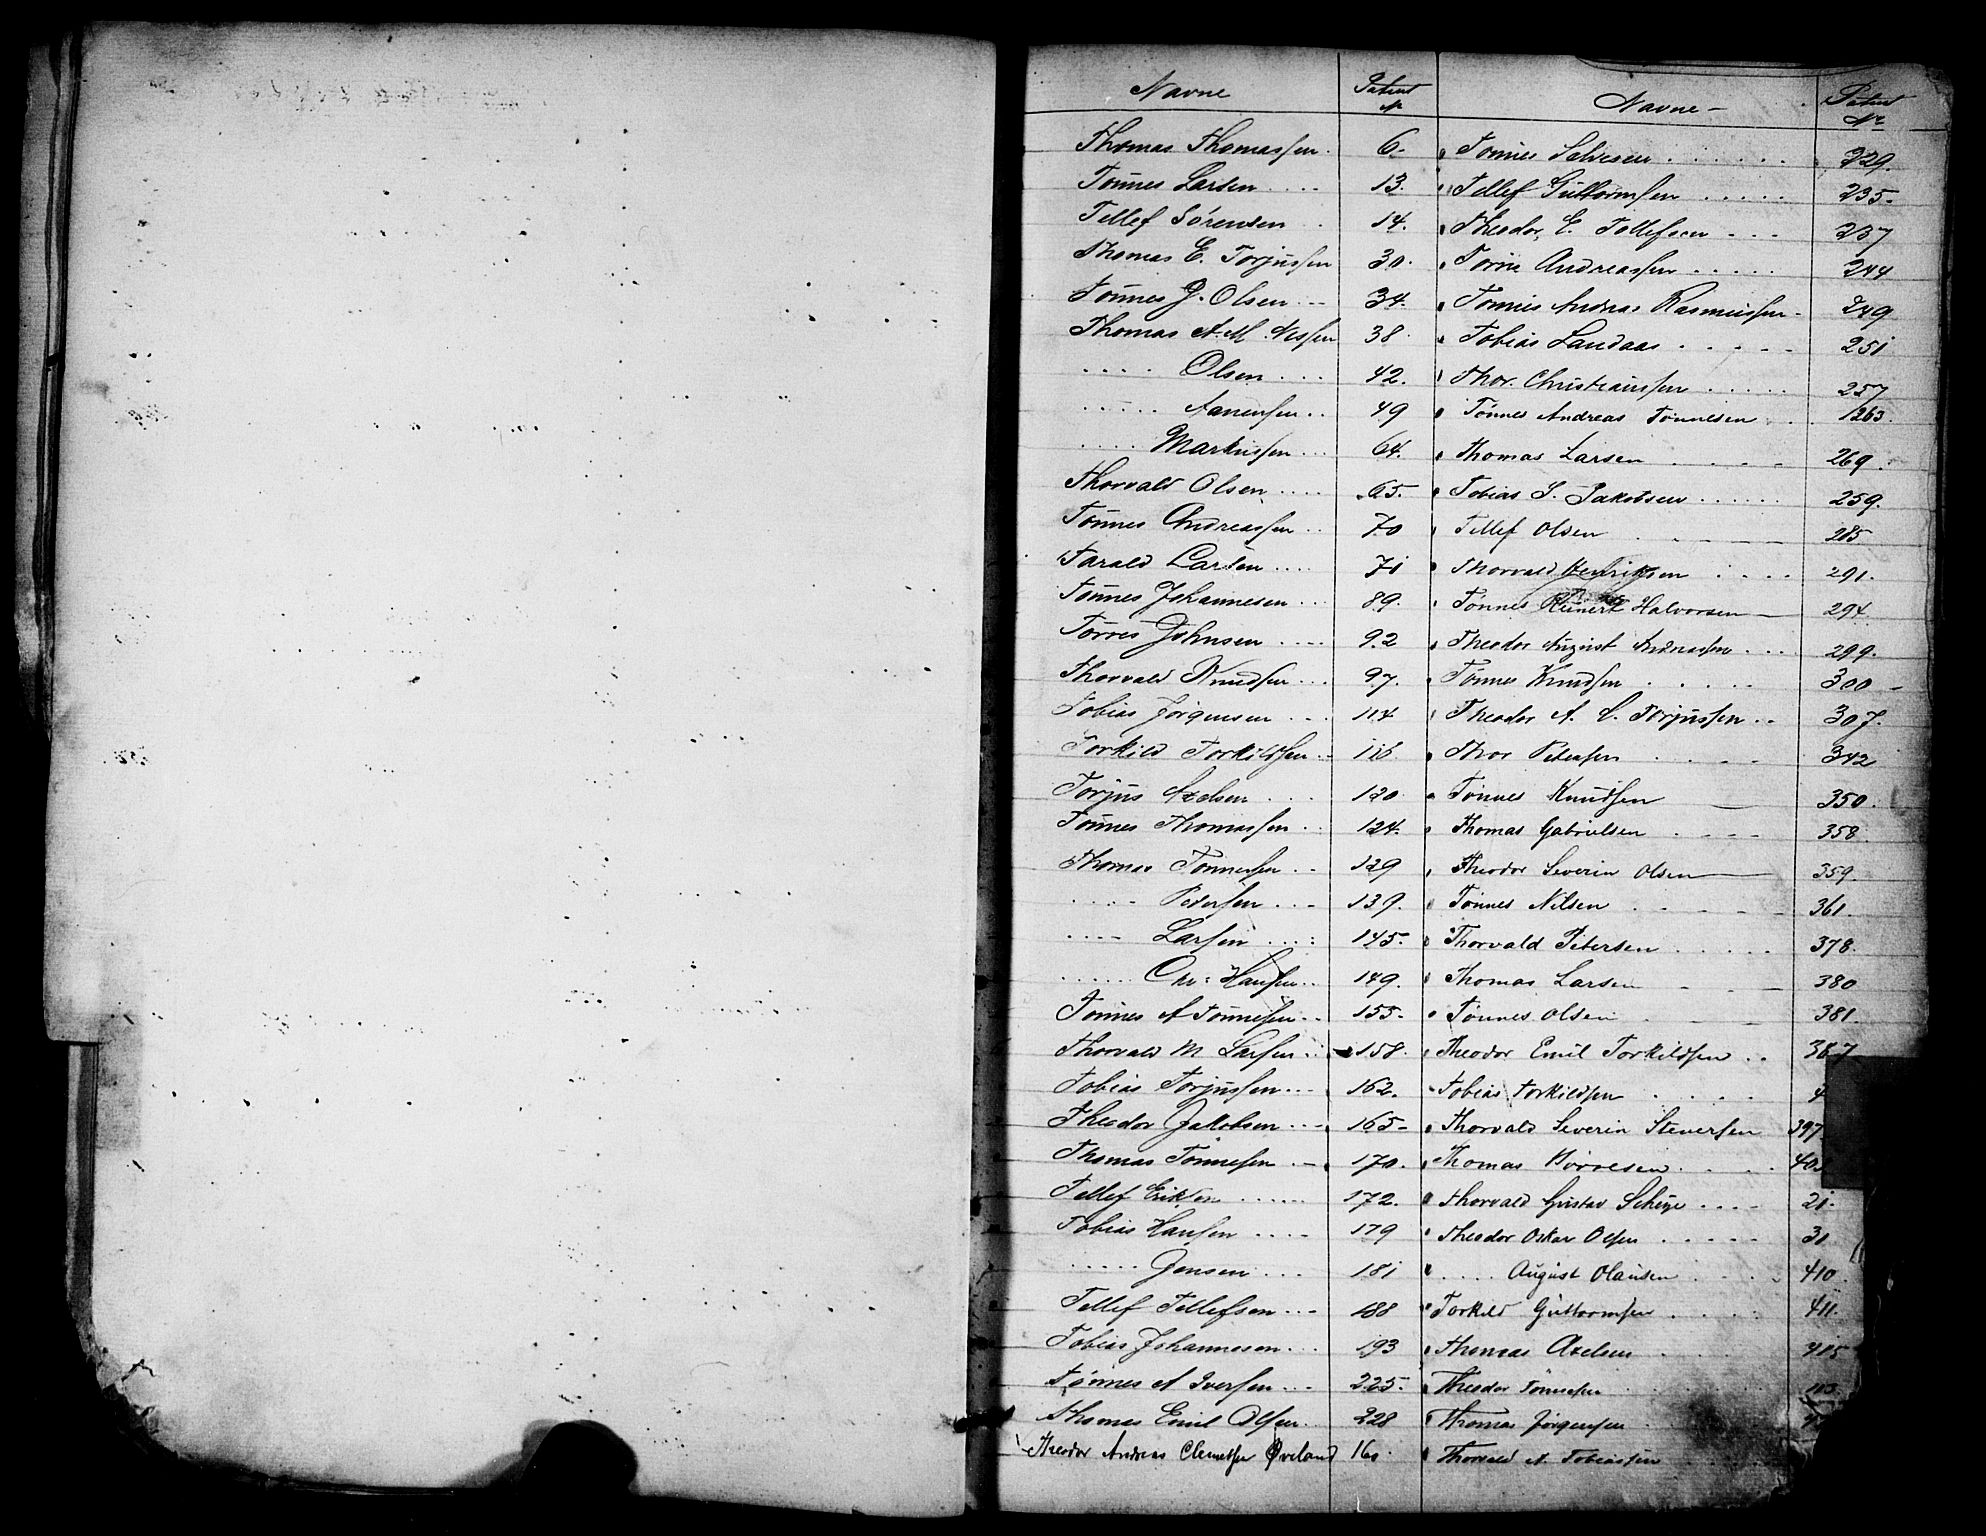 Navne Patent Nr
Thomas Thomassen 6.
Tönnes Larsen 13.
Tellef Sörensen 14.
Thomas E. Torjussen 30.
Tönnes J. Olsen 34.
Thomas A. M. Nissen 38
" Olsen 42.
" Aanensen 49
" Markussen 64.
Thorvald Olsen 65.
Tönnes Andreassen 70
Tarald Larsen 71
Tönnes Johannesen 89.
Torres Johnsen 92
Thorvald Knudsen 97.
Tobias Jörgensen 114
Torkild Torkildsen 116.
Torjus Axelsen 120
Tönnes Thomassen 124.
Thomas Tönnessen 129
" Pedersen 139.
" Larsen 145.
" Chr: Hansen 149.
Tönnes A Tönnesen 155.
Thorvald M Larsen 158.
Tobias Torjussen 162.
Theodor Jakobsen 165
Thomas Tönnesen 170.
Tellef Eriksen 172.
Tobias Hansen 179
" Jensen 181
Tellef Tellefsen 188
Tobias Johannesen 193
Tönnes A Iversen 225.
Thomas Emil Olsen 228
Theodor Andreas Clemetsen Øveland 160
Navne Patent Nr
Tönnes Salvesen 229.
Tellef Guttormsen 235.
Theodor E. Tellefsen 237
Andreassen 244
Tönnes Andreas Rasmussen 249
Tobias Landaas 251
Thor. Christianssen 257
Tönnes Andreas Tönnesen 1263.
Thomas Larsen 269.
Tobias S. Jakobsen 259.
Tellef Olsen 285
Thorvald Henriksen 291.
Tönnes Reinert Halvorsen 294.
Theodor August Andreassen 299.
Tönnes Knudsen 300
Theodor A. C. Torjussen 307.
Thor Petersen 342
Tönnes Knudsen 350.
Thomas Gabrielsen 358
Theodor Severin Olsen 359.
Tönnes Nilsen 361.
Thorvald Petersen 378.
Thomas Larsen 380
Tönnes Olsen 381.
Theodor Emil Torkildsen 387
Tobias Torkildsen
Thorvald Severin Stenersen 397
Thomas
Thorvald Gustav 21.
Theodor Oskar Olsen 31
" August Olausen 410.
Torkild Guttormsen 411.
Thomas Axelsen 415
Theodor Tönnesen
Thomas Jörgensen
Thorvald A Tobiassen